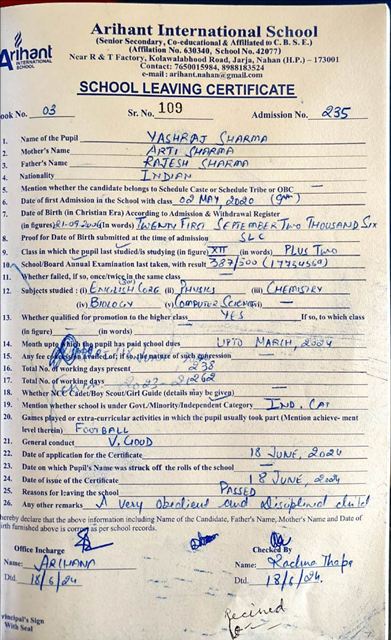 Arihant
INTERNATIONAL
SCHOOL
Arihant International School
(Senior Secondary, Co-educational & Affiliated to C. B. S. E.)
(Affiliation No. 630340, School No. 42077)
Near R & T Factory, Kolawalabhood Road, Jarja, Nahan (H.P.) - 173001
Contact: 7650015984, 8988183524
e-mail : arihant.nahan@gmail.com
SCHOOL LEAVING CERTIFICATE
ook No. 03 Sr. No. 109 Admission No. 235
1. Name of the Pupil YASHRAJ SHARMA
2. Mother's Name ARTI SHARMA
3. Father's Name RAJESH SHARMA
4. Nationality INDIAN
5. Mention whether the candidate belongs to Schedule Caste or Schedule Tribe or OBC —
6. Date of first Admission in the School with class 02 MAY, 2020 (9th)
7. Date of Birth (in Christian Era) According to Admission & Withdrawal Register
(in figures) 21-09-2006 (in words) TWENTY FIRST SEPTEMBER TWO THOUSAND SIX
8. Proof for Date of Birth submitted at the time of admission SLC
9. Class in which the pupil last studied/is studying (in figure) XII (in words) PLUS TWO
10. School/Board Annual Examination last taken, with result 387/500
11. Whether failed, if so, once/twice in the same class —
12. Subjects studied : (i) ENGLISH CORE (ii) PHYSICS (iii) CHEMISTRY
(iv) BIOLOGY (v) COMPUTER SCIENCE
13. Whether qualified for promotion to the higher class YES If so, to which class
(in figure) (in words)
14. Month upto the pupil has paid school dues UPTO MARCH, 2024
15. Any fee concession availed of; if so, the nature of such concession —
16. Total No. of working days present 238
17. Total No. of working days 262
18. Whether NCC Cadet/Boy Scout/Girl Guide (details may be given) —
19. Mention whether school is under Govt./Minority/Independent Category IND. CAT
20. Games played or extra-curricular activities in which the pupil usually took part (Mention achieve- ment
level therein) FOOTBALL
21. General conduct V. GOOD
22. Date of application for the Certificate 18 JUNE, 2024
23. Date on which Pupil's Name was struck off the rolls of the school —
24. Date of issue of the Certificate 18 JUNE, 2024
25. Reasons for leaving the school PASSED
26. Any other remarks A very Obedient and Disciplined child
hereby declare that the above information including Name of the Candidate, Father's Name, Mother's Name and Date of
birth furnished above is correct as per school records.
Office Incharge Checked By
Name: ARIHANA Name: Rachna Thapa
Dtd. 18/6/24 Dtd. 18/6/24.
Principal's Sign
With Seal
Recieved